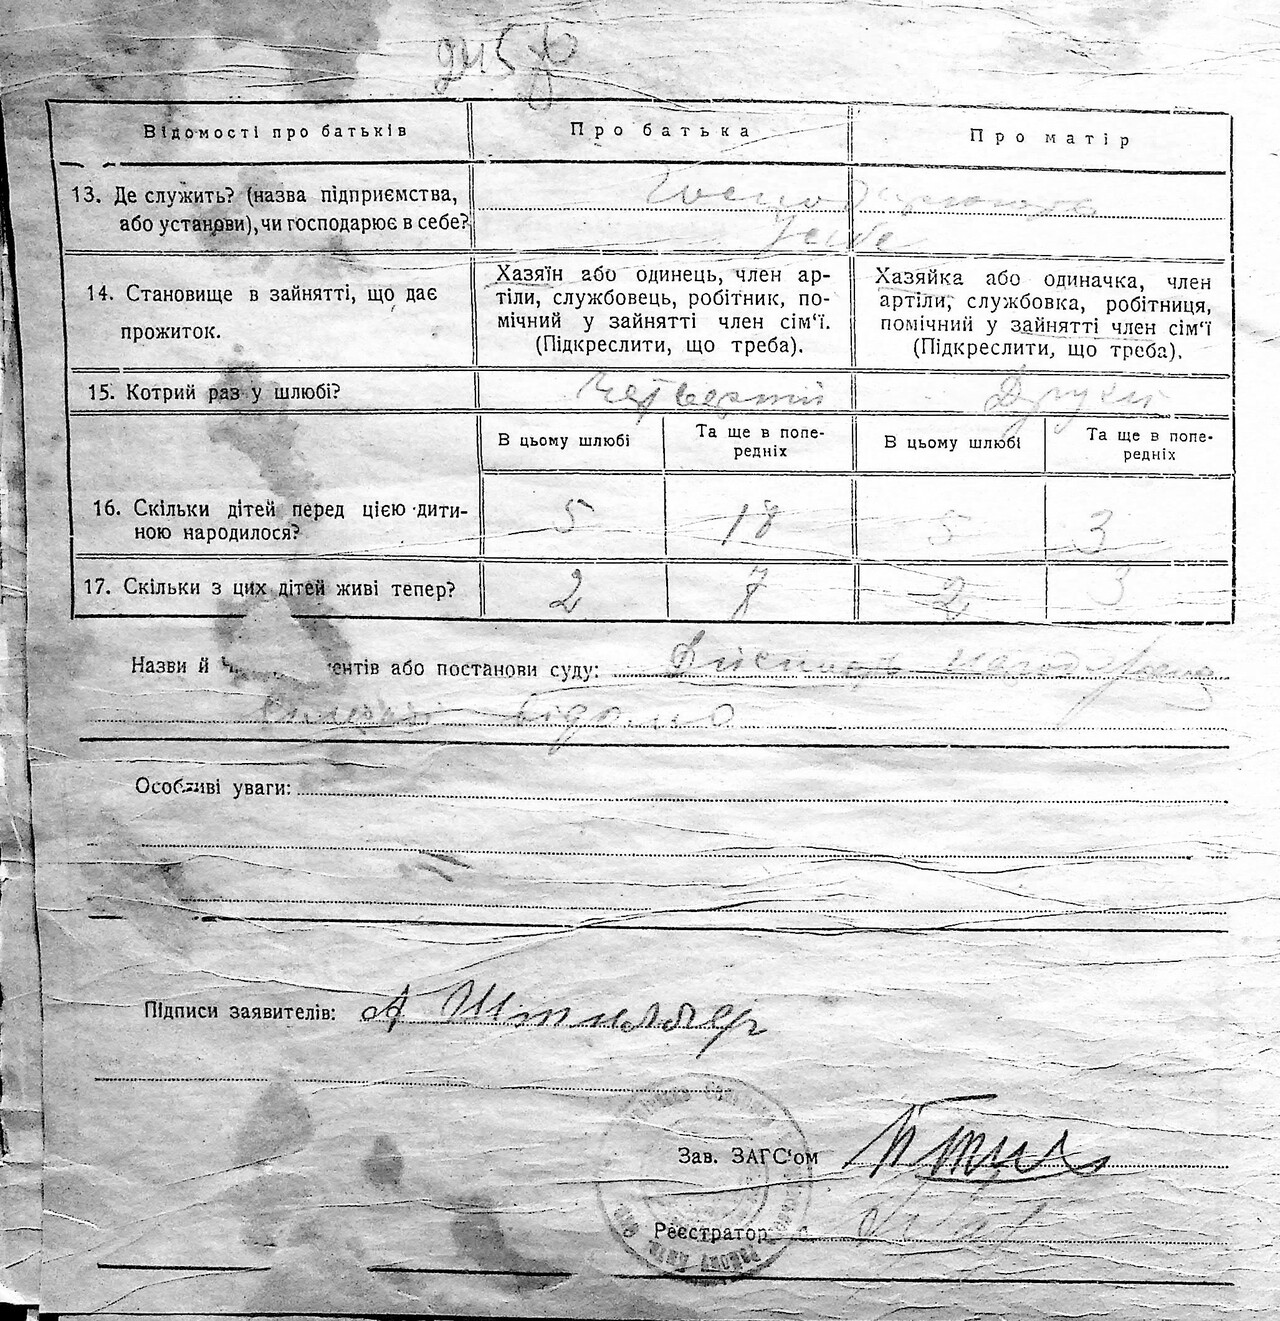 Відомості про батьків
Про батька
Про матір
13. Де служить? (назва підприємства,
або установи), чи господарює в себе?
Господарюють
у себе
14. Становище в зайнятті, що дає
прожиток.
Хазяїн або одинець, член ар-
тіли, службовець, робітник, по-
мічний у зайнятті член сім‘ї.
(Підкреслити, що треба).
Хазяйка або одиначка, член
артіли, службовка, робітниця,
помічний у зайнятті член сім‘ї
(Підкреслити, що треба).
15. Котрий раз у шлюбі?
Четвертий
Другий
В цьому шлюбі
Та ще в попе-
редніх
В цьому шлюбі
Та ще в попе-
редніх
16. Скільки дітей перед цією дити-
ною народилося?
5
18
5
3
17. Скільки з цих дітей живі тепер?
2
7
2
3
Назви й або постанови суду:
відомо
Особливі уваги:
Підписи заявителів: А
Зав. ЗАГС‘ом
Реєстратор